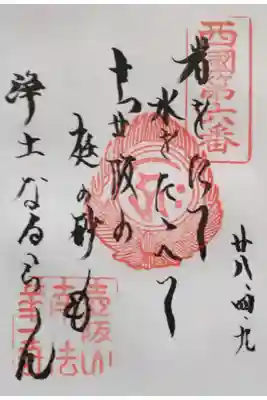 西國第六番
岩をたて
水をたゝへて
阪の
庭の砂も
浄土なるらん
廿八、四、九
壺阪山
南法
華寺